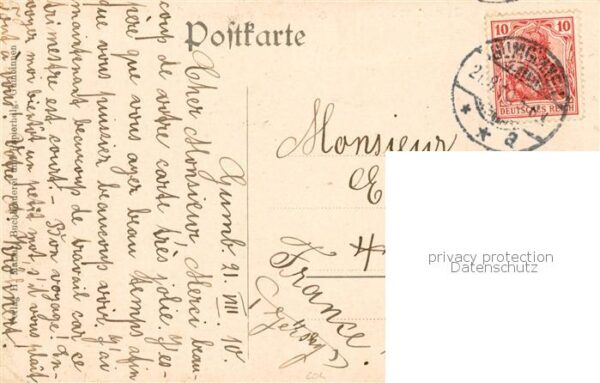 Postkarte
10 10
DEUTSCHES REICH
a
Gumb. 21. VIII. 10.
Cher Monsieur! Merci beau-
coup de votre carte très jolie. J'es-
père que vous ayez beau temps afin
que vous puissiez beaucoup voir. J'ai
maintenant beaucoup de travail car ce
trimestre est court. - Bon voyage! En-
voyez moi bientôt un petit mot s'il vous plaît
Monsieur
E
France
privacy protection
Datenschutz